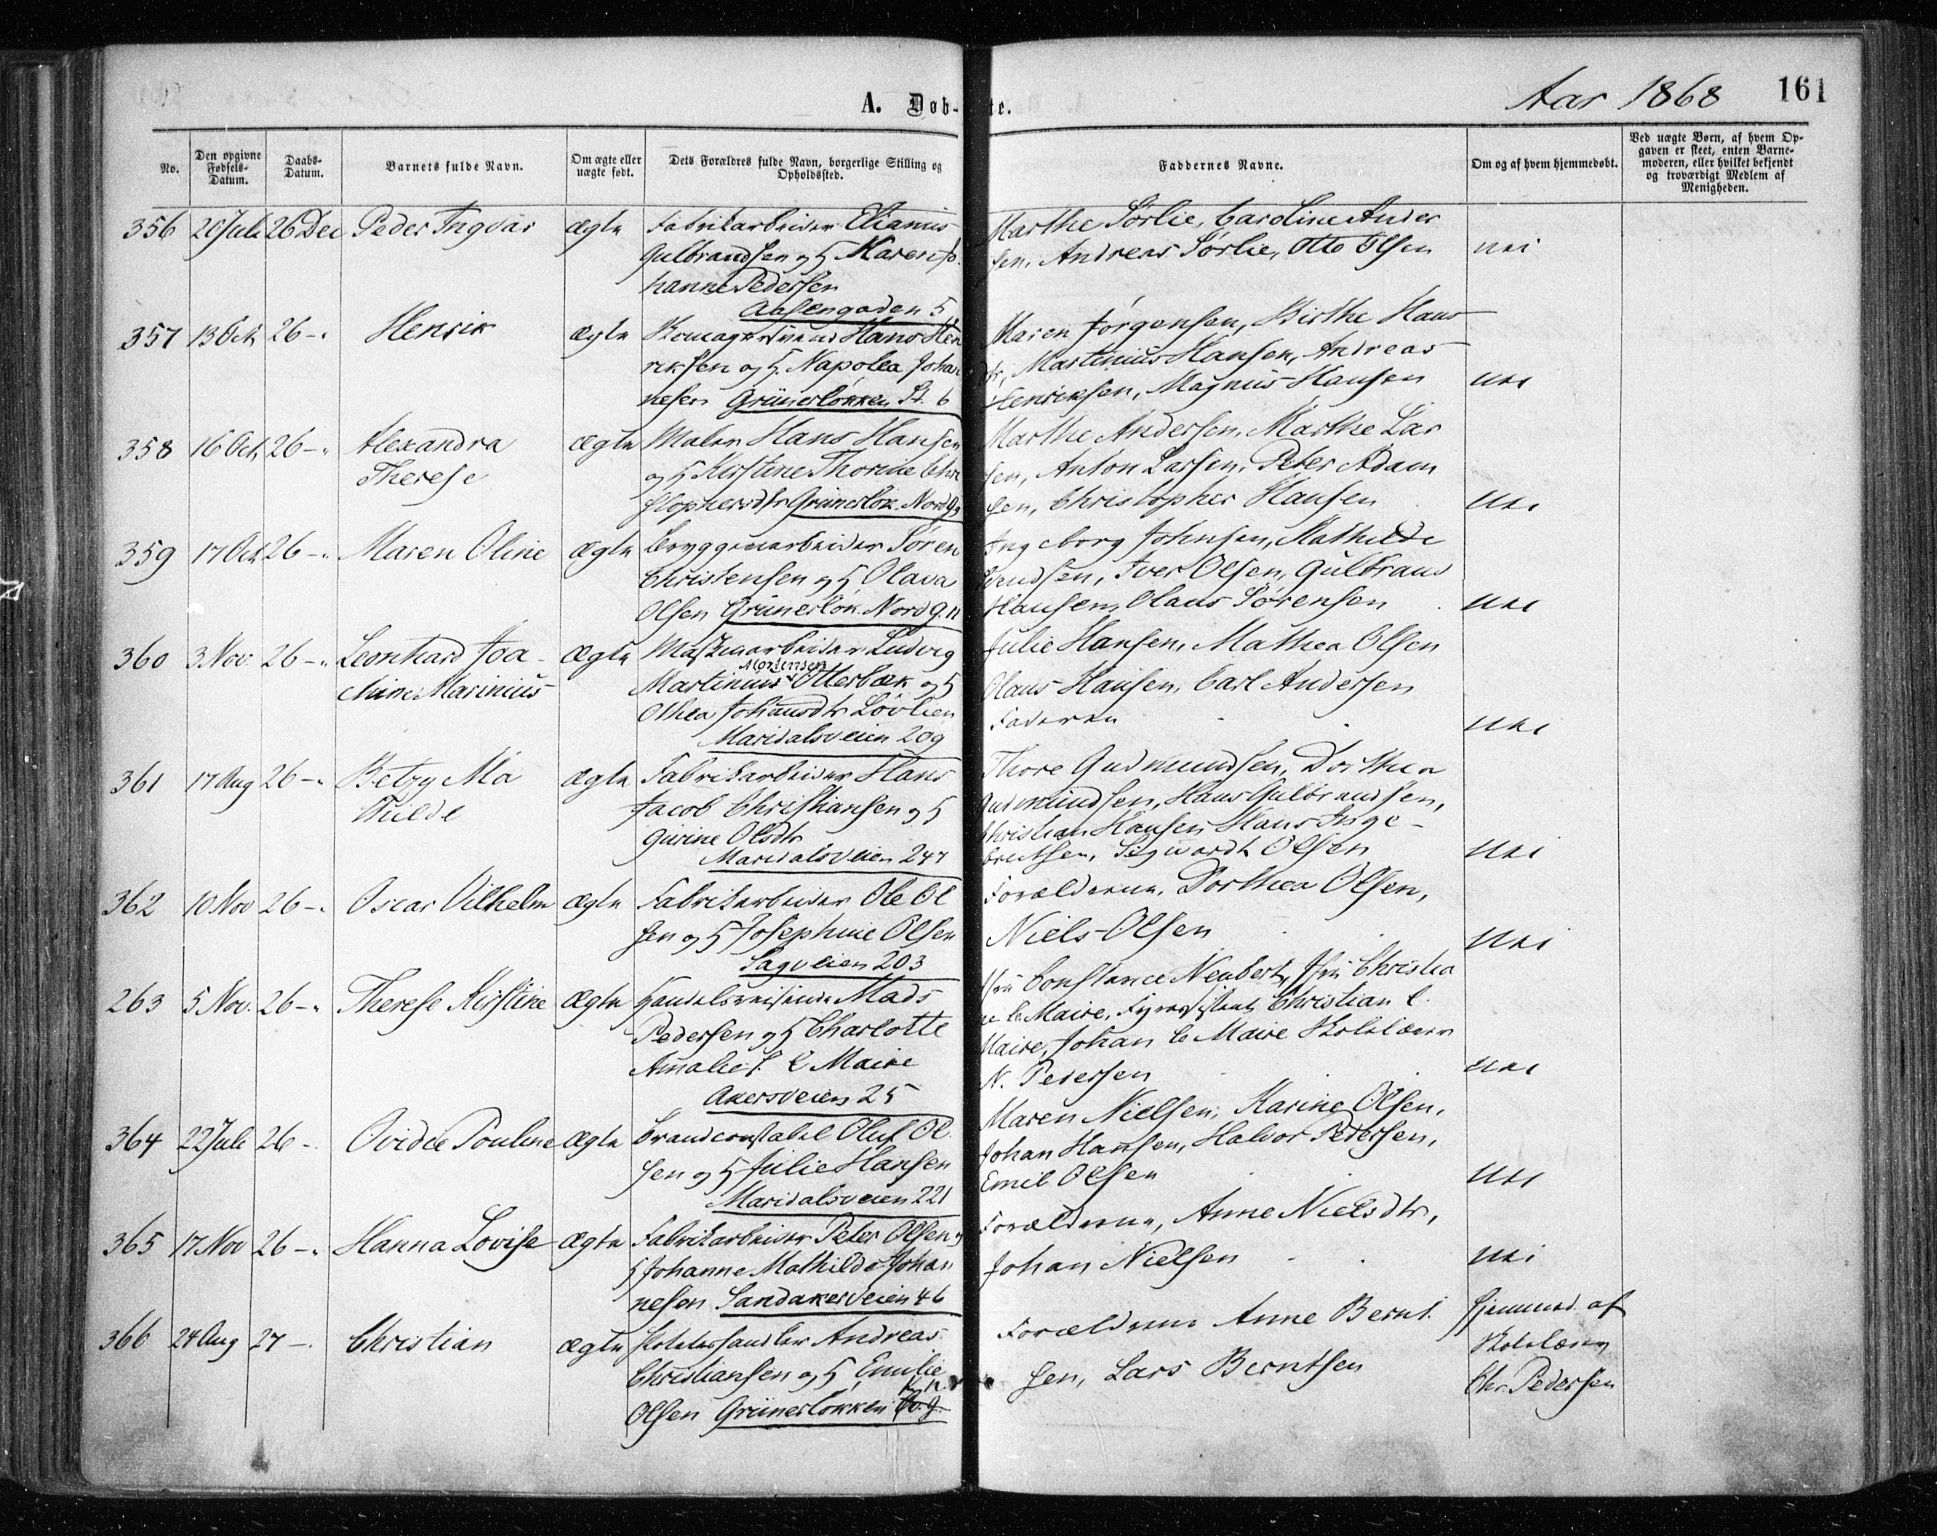 A. Døb- te.
Aar 1868
161
No.
Den opgivne Fødsels-Datum.
Daabs-Datum.
Barnets fulde Navn.
Om ægte eller uægte født.
Dets Forældres fulde Navn, borgerlige Stilling og Opholdssted.
Faddernes Navne.
Om og af hvem hjemmedøbt.
Ved uægte Børn, af hvem Opgaven er skeet, enten Barnemoderen, eller hvilket bekjendt og troværdigt Medlem af Menigheden.
356 26 Juli 26 Dec Peder Ingvar ægte Fabrikarbeider Elianus Marthe Sørlie, Caroline Ander
Gulbrandsen og H Maren Jo sen, Andreas Sørlie, Otto Olsen nei
hanne Pedersen
gaden 5
357 13 Oct 26 -. Henrik ægte Hans Hen Maren Jørgensen, Birthe Hans
riksen og H. Napolea Johan dr, Martinius Hansen, Andreas
nesen Grünerløkken St. 6 Henriksen, Magnus Hansen nei
358 16 Oct 26 -. Alexandra ægte Maler Hans Hansen Marthe Andersen, Marthe Lar
Therese og H Kirstine Thorine Chri sen, Anton Larsen, Peter Adam
stophersdtr Grünerløk. Nordg. sen, Christopher Hansen nei
359 17 Oct 26 -. Maren Oline ægte Bryggeriarbeider Søren Ingeborg Johnsen, Mathilde
Christensen og H Olava Svendsen, Iver Olsen, Gulbrand
Olsen Grünerløk. Nordg. 11 Hansen, Olaus Sørensen nei
360 3 Nov. 26 -. Leonhard Joa- ægte Maskinarbeider Ludvig Julie Hansen, Mathea Olsen
chim Marinius Martinius Mortensen Otterbæk og H Olaus Hansen, Carl Andersen
Othea Johansdtr Løvlien Faderen nei
Maridalsveien 209
361 17 Aug 26 -. Betzy Ma ægte Fabrikarbeider Hans Thore Gudmundsen, Dorthea
thilde Jacob Christiansen og H Gudmundsen, Hans Gulbrandsen,
Gurine Olsdtr Christian Hansen Hans Inge-
Maridalsveien 247 bretsen, Sigwardt Olsen nei
362 10 Nov 26 -. Oscar Vilhelm ægte Fabrikarbeider Ole Ol Forældrene, Dorthea Olsen,
sen og H Josephine Olsen Niels Olsen nei
Sagveien 203
263 5 Nov. 26 -. Therese Kirstine ægte Handelsreisende Mads Constance Neubert, Christia
Pedersen og H Charlotte ne le Maire, Christian le
Amalie le Maire Maire, Johan le Maire Skolelærer
Akersveien 25 N. Pedersen nei
364 22 Juli 26 -. Ovidée Pouline ægte Brandconstabel Oluf Ol Maren Nielsen, Karine Olsen,
sen og H Julie Hansen Johan Hansen, Halvor Pedersen,
Maridalsveien 221 Emil Olsen nei
365 17 Nov 26 -. Hanna Lovise ægte Fabrikarbeider Peter Olsen og Forældrene, Anne Nielsdtr,
H Johanne Mathilde Johan Johan Nielsen nei
nesen Sandakerveien 46
366 24 Aug 27 -. Christian ægte Andreas Forældrene Anne Bernt hjemmed. af
Christiansen og H Emilie sen, Lars Berntsen Skolelærer
Olsen Grünerløkken Chr. Pedersen